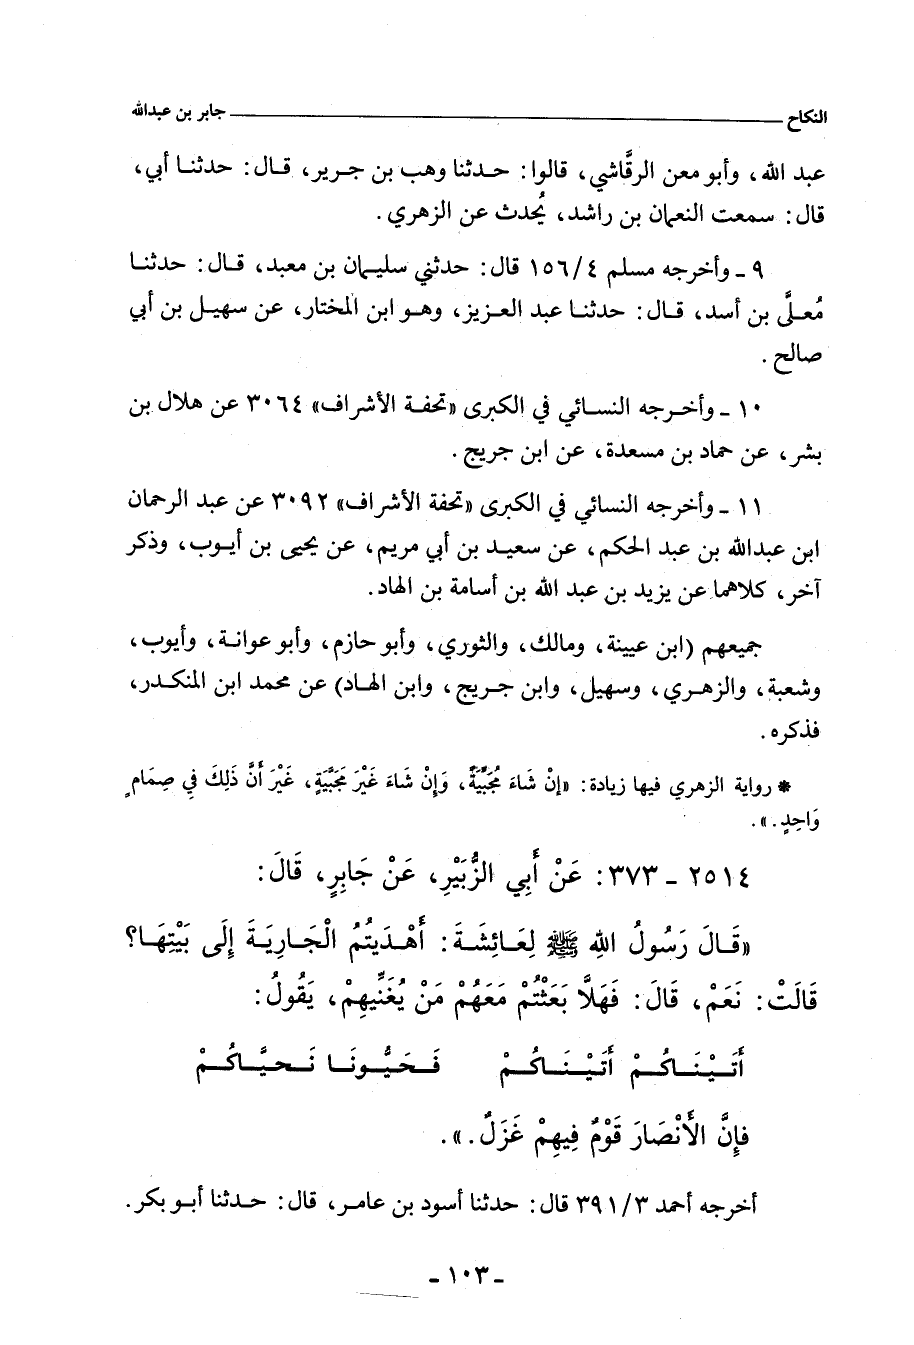 النكاح ــــــــــــــــــــ جابر بن عبدالله
عبد الله، وأبو معن الرقَّاشي، قالوا: حدثنا وهب بن جرير، قال: حدثنا أبي،
قال: سمعت النعمان بن راشد، يُحدث عن الزهري.
٩ ـ وأخرجه مسلم ١٥٦/٤ قال: حدثني سليمان بن معبد، قال: حدثنا
مُعلَّى بن أسد، قال: حدثنا عبد العزيز، وهو ابن المختار، عن سهيل بن أبي
صالح.
١٠ ـ وأخرجه النسائي في الكبرى «تحفة الأشراف» ٣٠٦٤ عن هلال بن
بشر، عن حماد بن مسعدة، عن ابن جريج.
١١ ـ وأخرجه النسائي في الكبرى «تحفة الأشراف» ٣٠٩٢ عن عبد الرحمان
ابن عبدالله بن عبد الحكم، عن سعيد بن أبي مريم، عن يحيى بن أيوب، وذكر
آخر، كلاهما عن يزيد بن عبد الله بن أسامة بن الهاد.
جميعهم (ابن عيينة، ومالك، والثوري، وأبو حازم، وأبو عوانة، وأيوب،
وشعبة، والزهري، وسهيل، وابن جريج، وابن الهاد) عن محمد ابن المنكدر،
فذكره.
* رواية الزهري فيها زيادة: «إنْ شَاءَ مُجَبِّيَةً، وَإِنْ شَاءَ غَيْرَ مُجَبِّيَةٍ، غَيْرَ أَنَّ ذَلِكَ فِي صِمَامٍ
وَاحِدٍ.».
٢٥١٤ ـ ٣٧٣: عَنْ أَبِي الزُّبَيْرِ، عَنْ جَابِرٍ، قَالَ:
«قَالَ رَسُولُ اللهِ ﷺ لِعَائِشَةَ: أَهْدَيْتُمُ الْجَارِيَةَ إِلَى بَيْتِهَا؟
قَالَتْ: نَعَمْ، قَالَ: فَهَلَّا بَعَثْتُمْ مَعَهُمْ مَنْ يُغَنِّيهِمْ، يَقُولُ:
أَتَيْنَاكُمْ أَتَيْنَاكُمْ فَحَيُّونَا نَحيَّاكُمْ
فإِنَّ الأَنْصَارَ قَوْمٌ فِيهِمْ غَزَلٌ.».
أخرجه أحمد ٣٩١/٣ قال: حدثنا أسود بن عامر، قال: حدثنا أبو بكر.
ـ ١٠٣ ـ